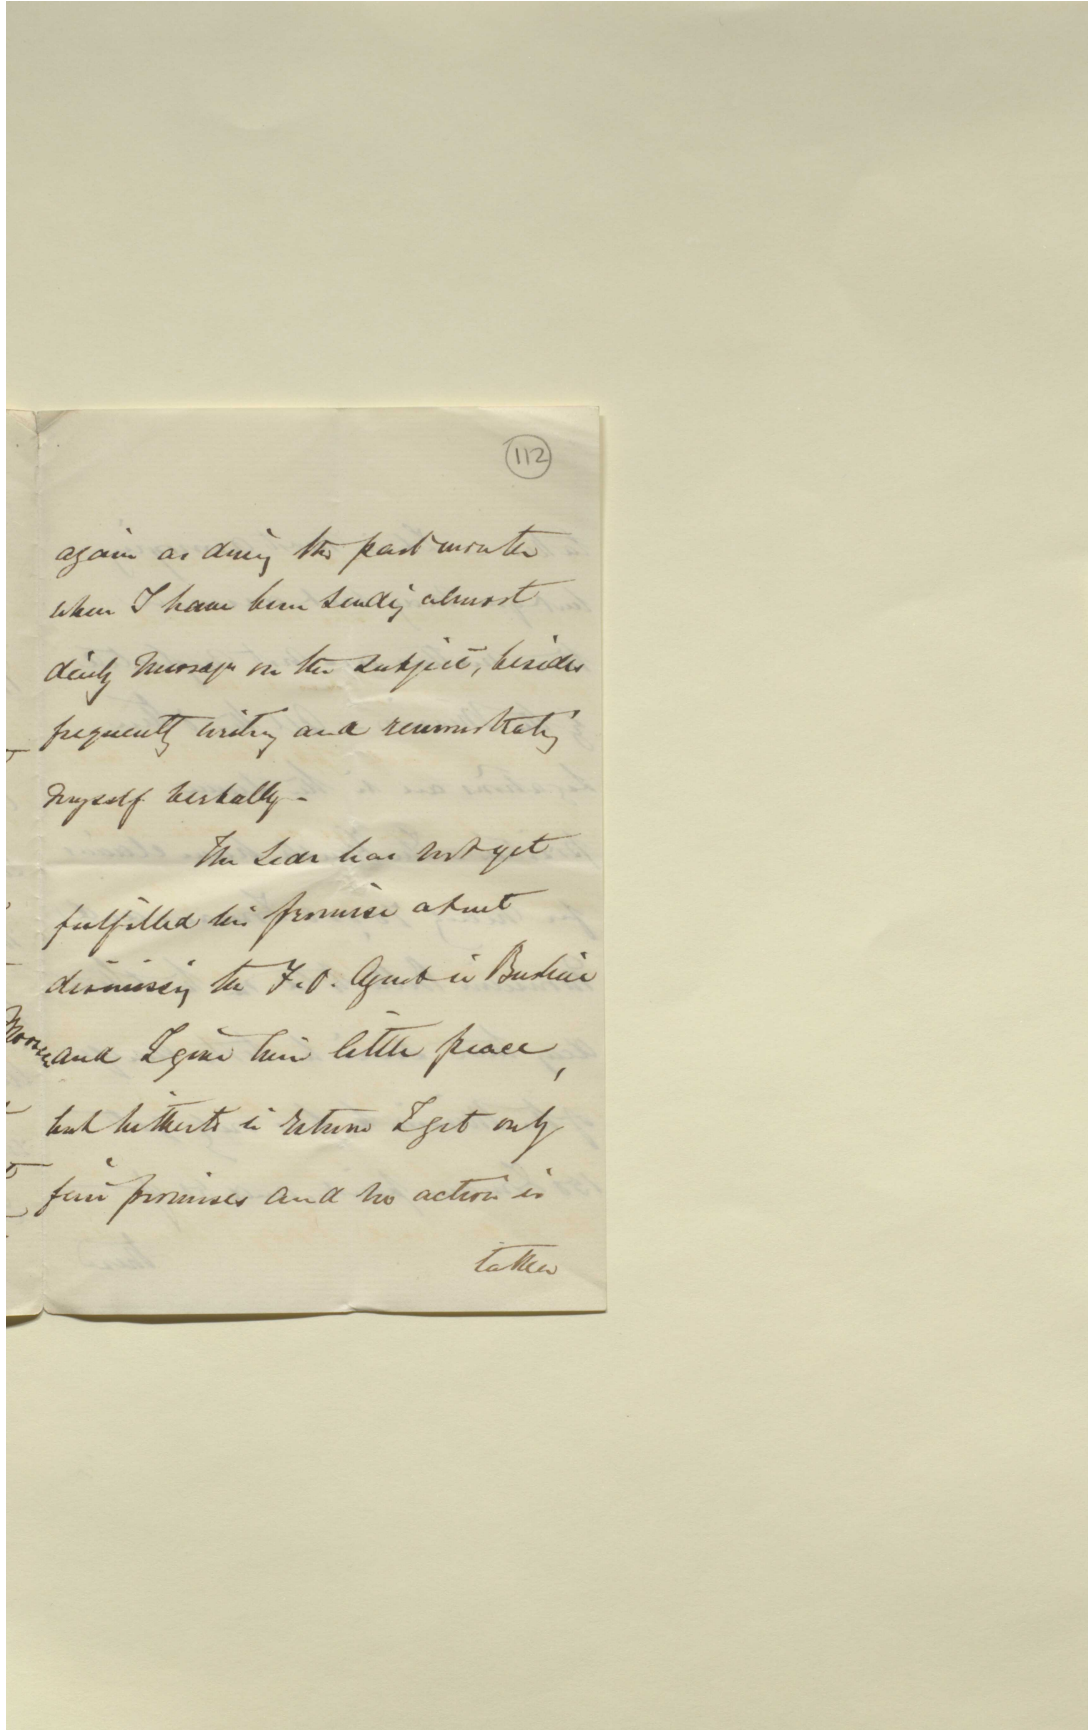 112
again as during the past month
when I have been sending almost
daily messages on the subject, besides
frequently writing and remonstrating
myself verbally -
The Sedr has not yet
fulfilled his promise about
dismissing the F.O. Agent in Bushire
and I give him little peace,
but hitherto in return I get only
fair promises and no action is
taken